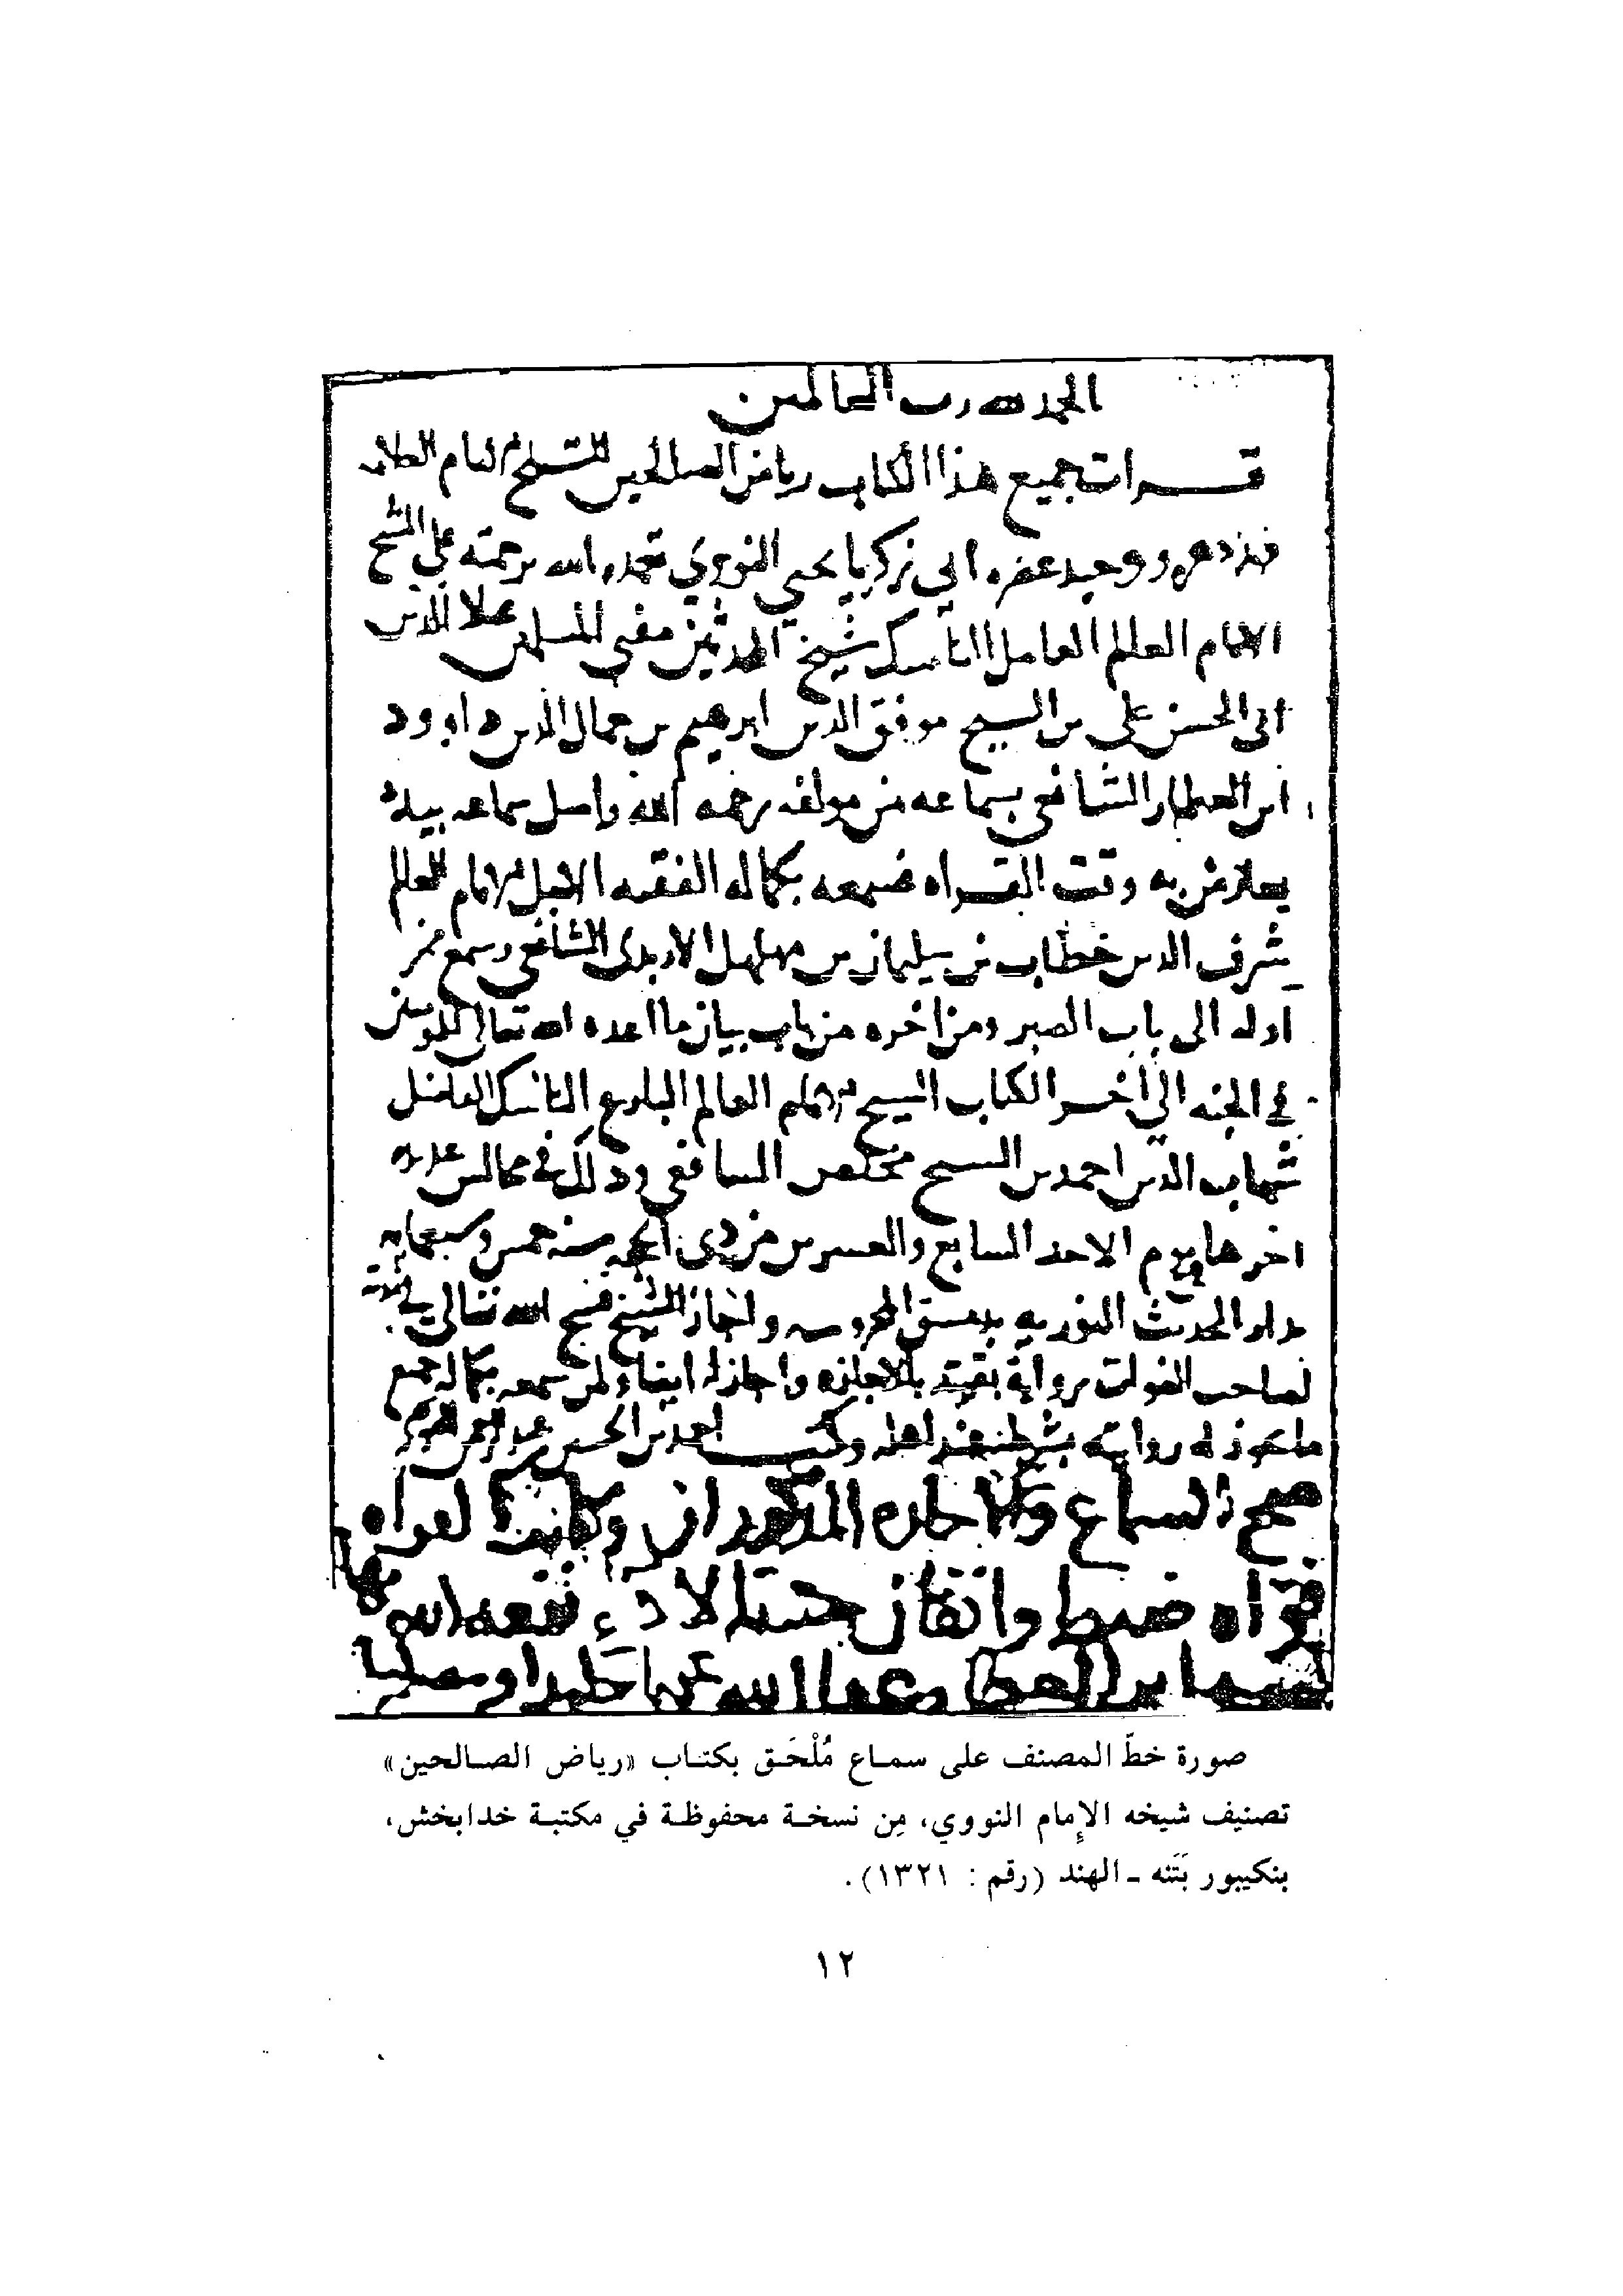 الحمد لله رب العالمين
قرات جميع هذا الكتاب رياض الصالحين للشيخ الامام العلامه
فريد دهره ووحيد عصره ابي زكريا يحيى النووي تغمده الله برحمته على الشيخ
الامام العالم العامل الناسك شيخ المحدثين مفتي المسلمين علا الدين
ابي الحسن علي بن الشيخ موفق الدين ابرهيم بن جمال الدين داوود
ابن العطار الشافعي بسماعه من مولفه رحمه الله واصل سماعه بيده
يعارض به وقت القراه فسمعه بكماله الفقيه الاجل الامام العالم
شرف الدين خطاب بن سليمان بن مهلهل الاربدي الشافعي وسمع من
اوله الى باب الصبر ومن اخره من باب بيان ما اعده الله تعالى للمومنين
في الجنه الى اخر الكتاب الشيخ الامام العالم البارع الناسك الفاضل
شهاب الدين احمد بن الشيخ مخلص الشافعي وذلك في مجالس عديده
اخرها يوم الاحد السابع والعشرين من ذي الحجه سنه خمس وسبعمايه
بدار الحديث النوريه بدمشق المحروسه واجاز الشيخ فسح الله تعالى في مدته
لصاحب الفوات روايه بقيته بالاجازه واجاز له ايضا ولمن سمعه بكماله جميع
ما يجوز له روايته بشرطه عند اهله وكتب احمد بن الحسين
صحيح السماع والاجازه المذكوران وكانت القراه
قراه ضبط واتقان الله
ابن العطار عفا الله عنهما حامدا ومصليا
صورة خطّ المصنف على سماع مُلْحَق بكتاب «رياض الصالحين»
تصنيف شيخه الإمام النووي، مِن نسخة محفوظة في مكتبة خدابخش،
بنكيبور بَتَنه - الهند (رقم : ١٣٢١).
١٢